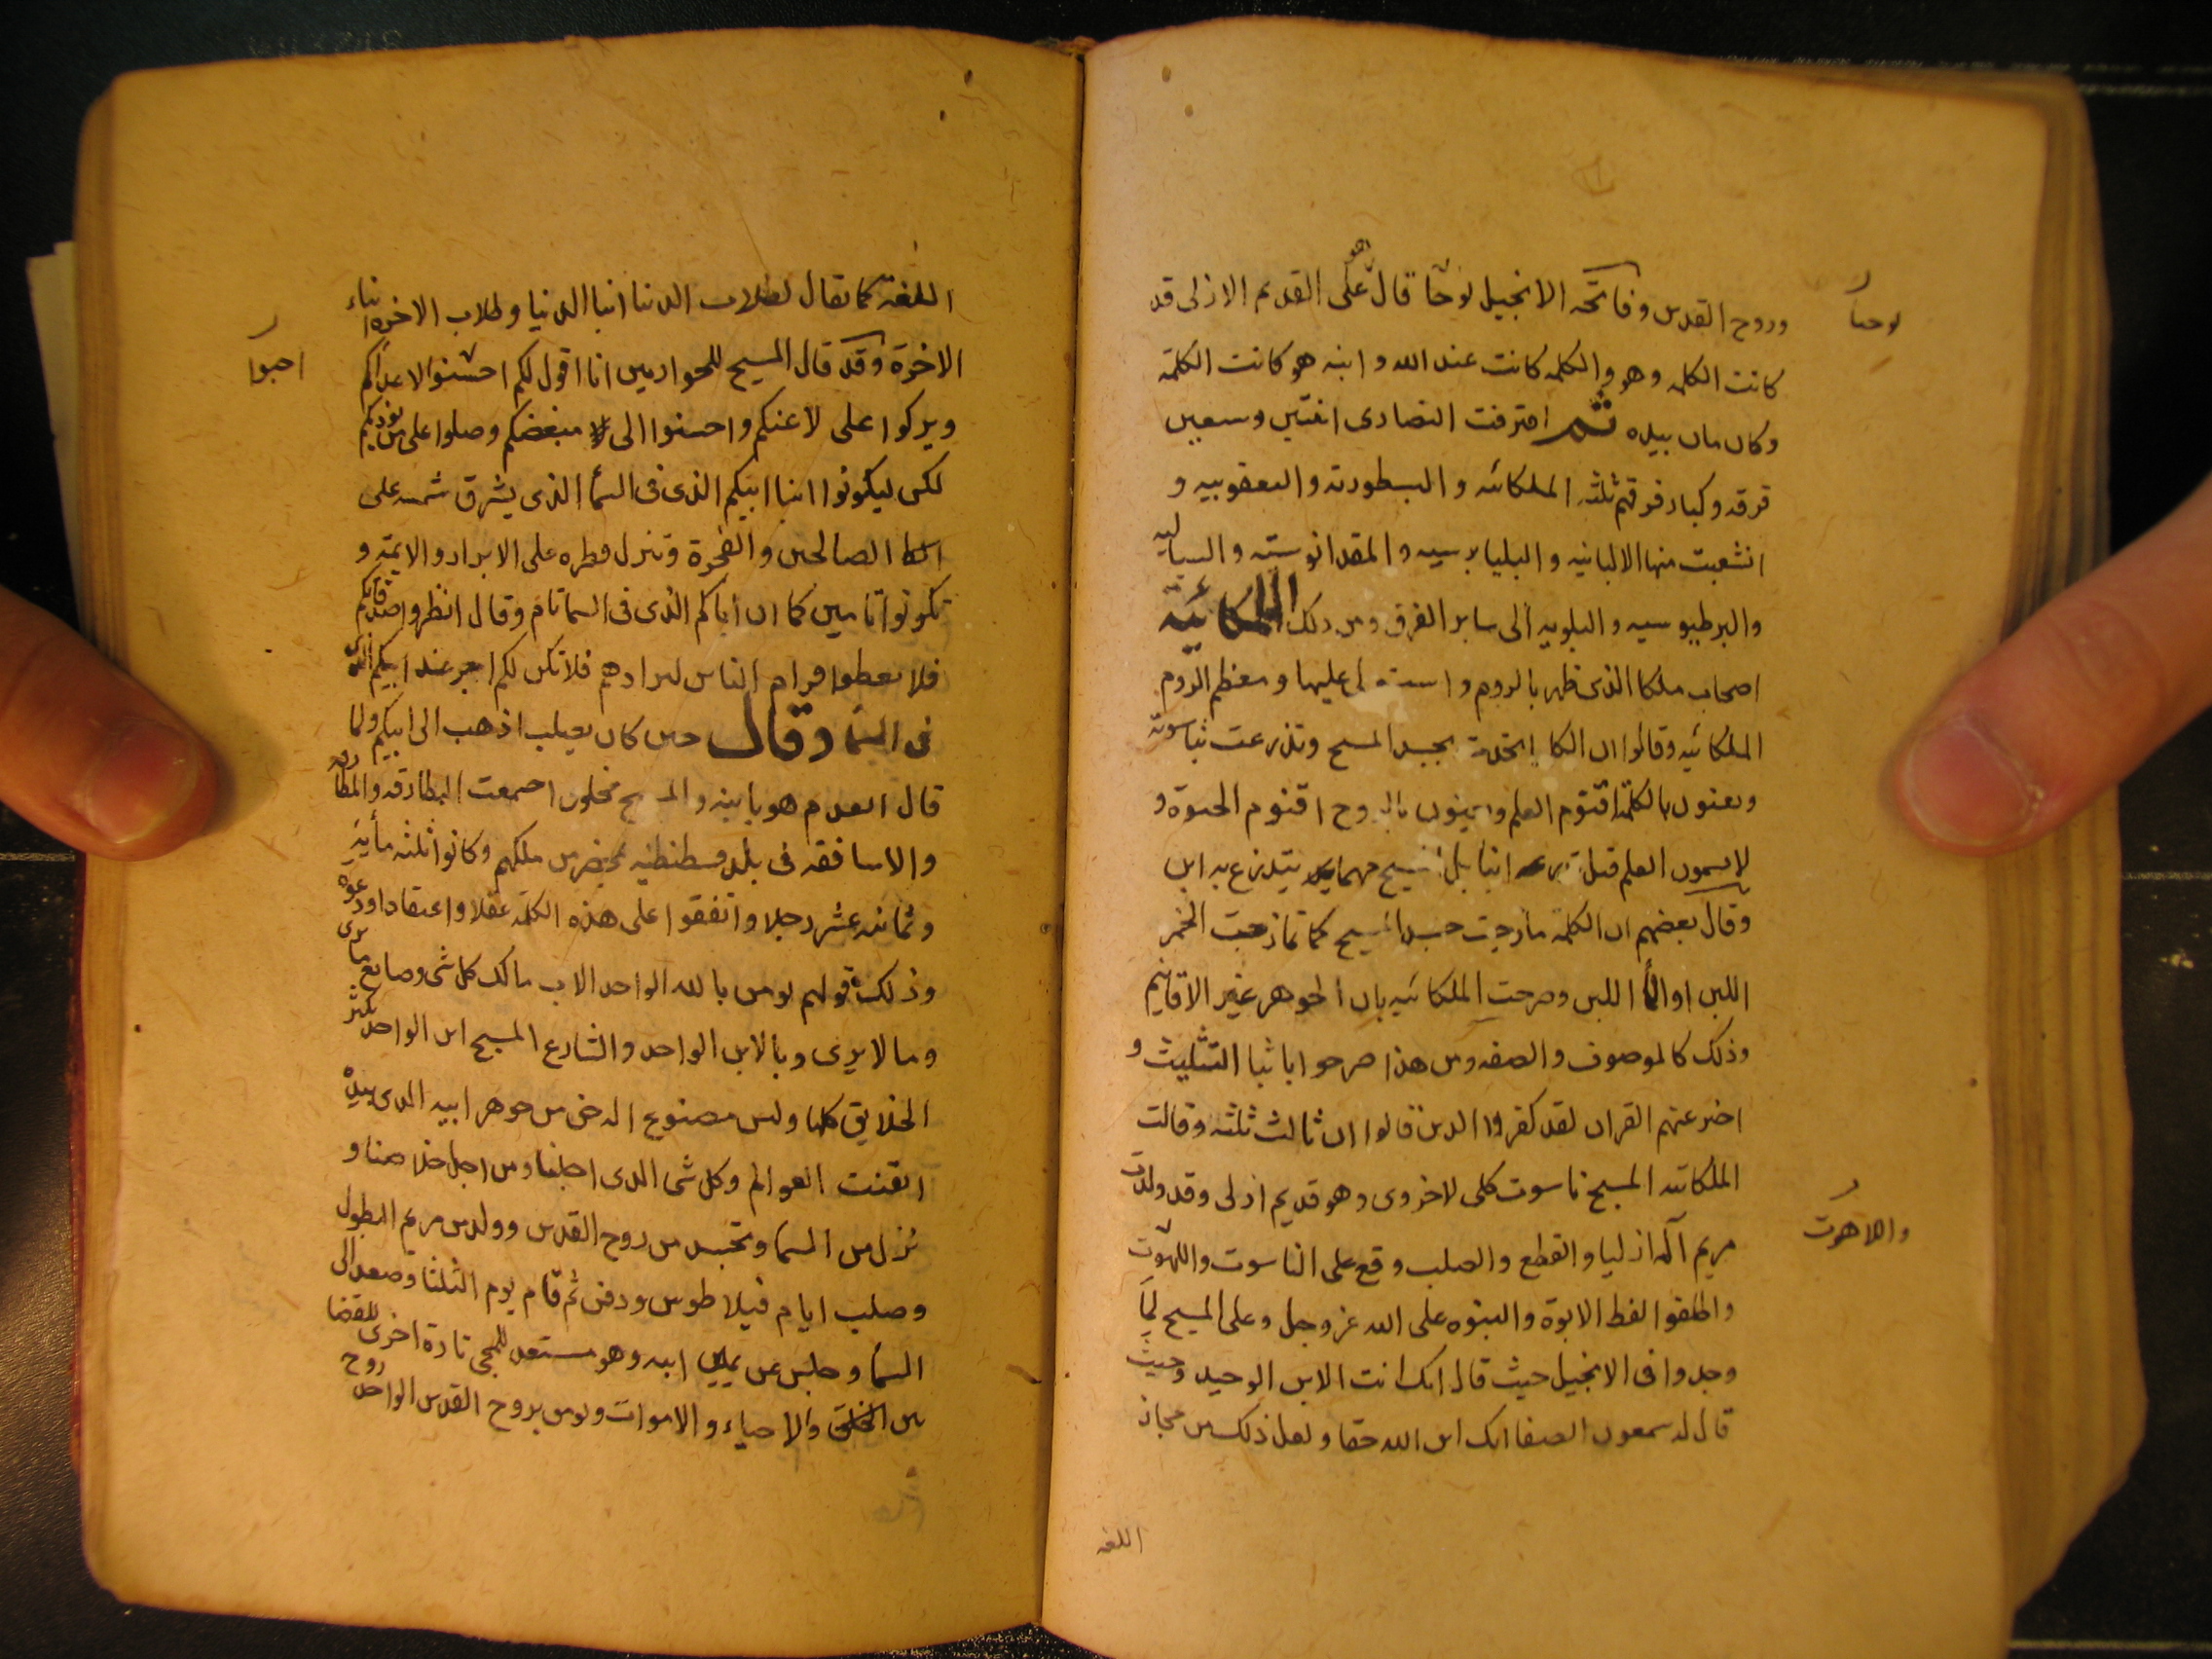 وروح القدس وفاتحه الانجيل لوحا قال على القديم الازلى قد
يوحنا
كانت الكلمه وهو والكلمه كانت عند الله و ابنه هو كانت الكلمة
وكان مان بيده ثم افترقت النصارى اثنتين وسبعين
فرقه وكبار فرقهم ثلثه الملكائه و النسطوريه و اليعقوبيه و
انشعبت منها الاليانيه و البليارسيه و المقدانوسيه و السباليه
والبرطينوسيه و البلويه الى ساير الفرق ومن ذلك الملكائيه
اصحاب ملكا الذى ظهر بالروم و استولى عليها و معظم الروم
الملكائيه وقالوا ان الكلمة اتحدت بجسد المسيح وتذرعت بناسوته
ويعنون بالكلمة اقنوم العلم ويعنون بالروح اقنوم الحيوة و
لا يسمون العلم قبل تدرعه ابنا بل المسيح مع ما يتدرع به ابن
وقال بعضهم ان الكلمه مازجت جسد المسيح كما تمازجت الخمر
اللبن او الماء اللبن وصرحت الملكائيه بان الجوهر غير الاقانيم
وذلك كالموصوف والصفه ومن هذا صرحوا باثبا التثليث و
اخبر عنهم القران لقد كفروا الذين قالوا ان ثالث ثلثه وقالت
الملكائيه المسيح ناسوت كلى لاجزوى وهو قديم ازلى وقد ولدت
مريم آلها ازليا والقطع والصلب وقع على الناسوت واللهوت
واللاهوت
واطلقوا لفظ الابوة والبنوه على الله عز وجل وعلى المسيح لما
وجدوا فى الانجيل حيث قال انك انت الابن الوحيد وحيث
قال له سمعون الصفا انك ابن الله حقا ولعل ذلك من مجاز
اللغه
اللغة كما يقال لطلاب الدنيا ابنا الدنيا ولطلاب الاخرة ابناء
الاخرة وقد قال المسيح للحواريين انا اقول لكم احسنوا لاعداكم
احبوا
وبركوا على لاعنكم واحسنوا الى مبغضكم وصلوا على من يوذيكم
لكى ليكونوا ابنا ابيكم الذى فى السما الذى يشرق شمسه على
الصالحين والفجرة وتنزل قطره على الابرار والاثمه و
تكونوا تامين كما ان اباكم الذى فى السما تام وقال انظروا صدقاتكم
فلا تعطوا قدام الناس لتراءوهم فلا تكن لكم اجر عند ابيكم الذى
فى السما وقال حين كان يصلب اذهب الى ابى وابيكم ولما
قال القدم هو بابنه والمسيح مخلوق اجمعت البطارقه والمطارنه
والاساقفه فى بلد قسطنطنيه بمحضر من ملكهم وكانوا ثلثمأيه
وثمانيه عشر رجلا واتفقوا على هذه الكلمة عقلا واعتقادا ودعوه
وذلك قولهم نومن بالله الواحد الاب مالك كل شى وصانع ما يرى
وما لا يرى وبالابن الواحد والشارع المسيح ابن الواحد بكر
الخلايق كلها وليس مصنوع اله حق من جوهر ابيه الذى بيده
اتقنت العوالم وكل شى الذى اجلنا ومن اجل خلاصنا و
نزل من السما وتجسد من روح القدس وولد من مريم البطول
وصلب ايام فيلاطوس ودفن ثم قام يوم الثلثا وصعد الى
السما وجلس عن يمين ابيه وهو مستعد للمجى تارة اخرى للقضا
بين الخلق والاحياء و الاموات ونومن بروح القدس الواحد روح